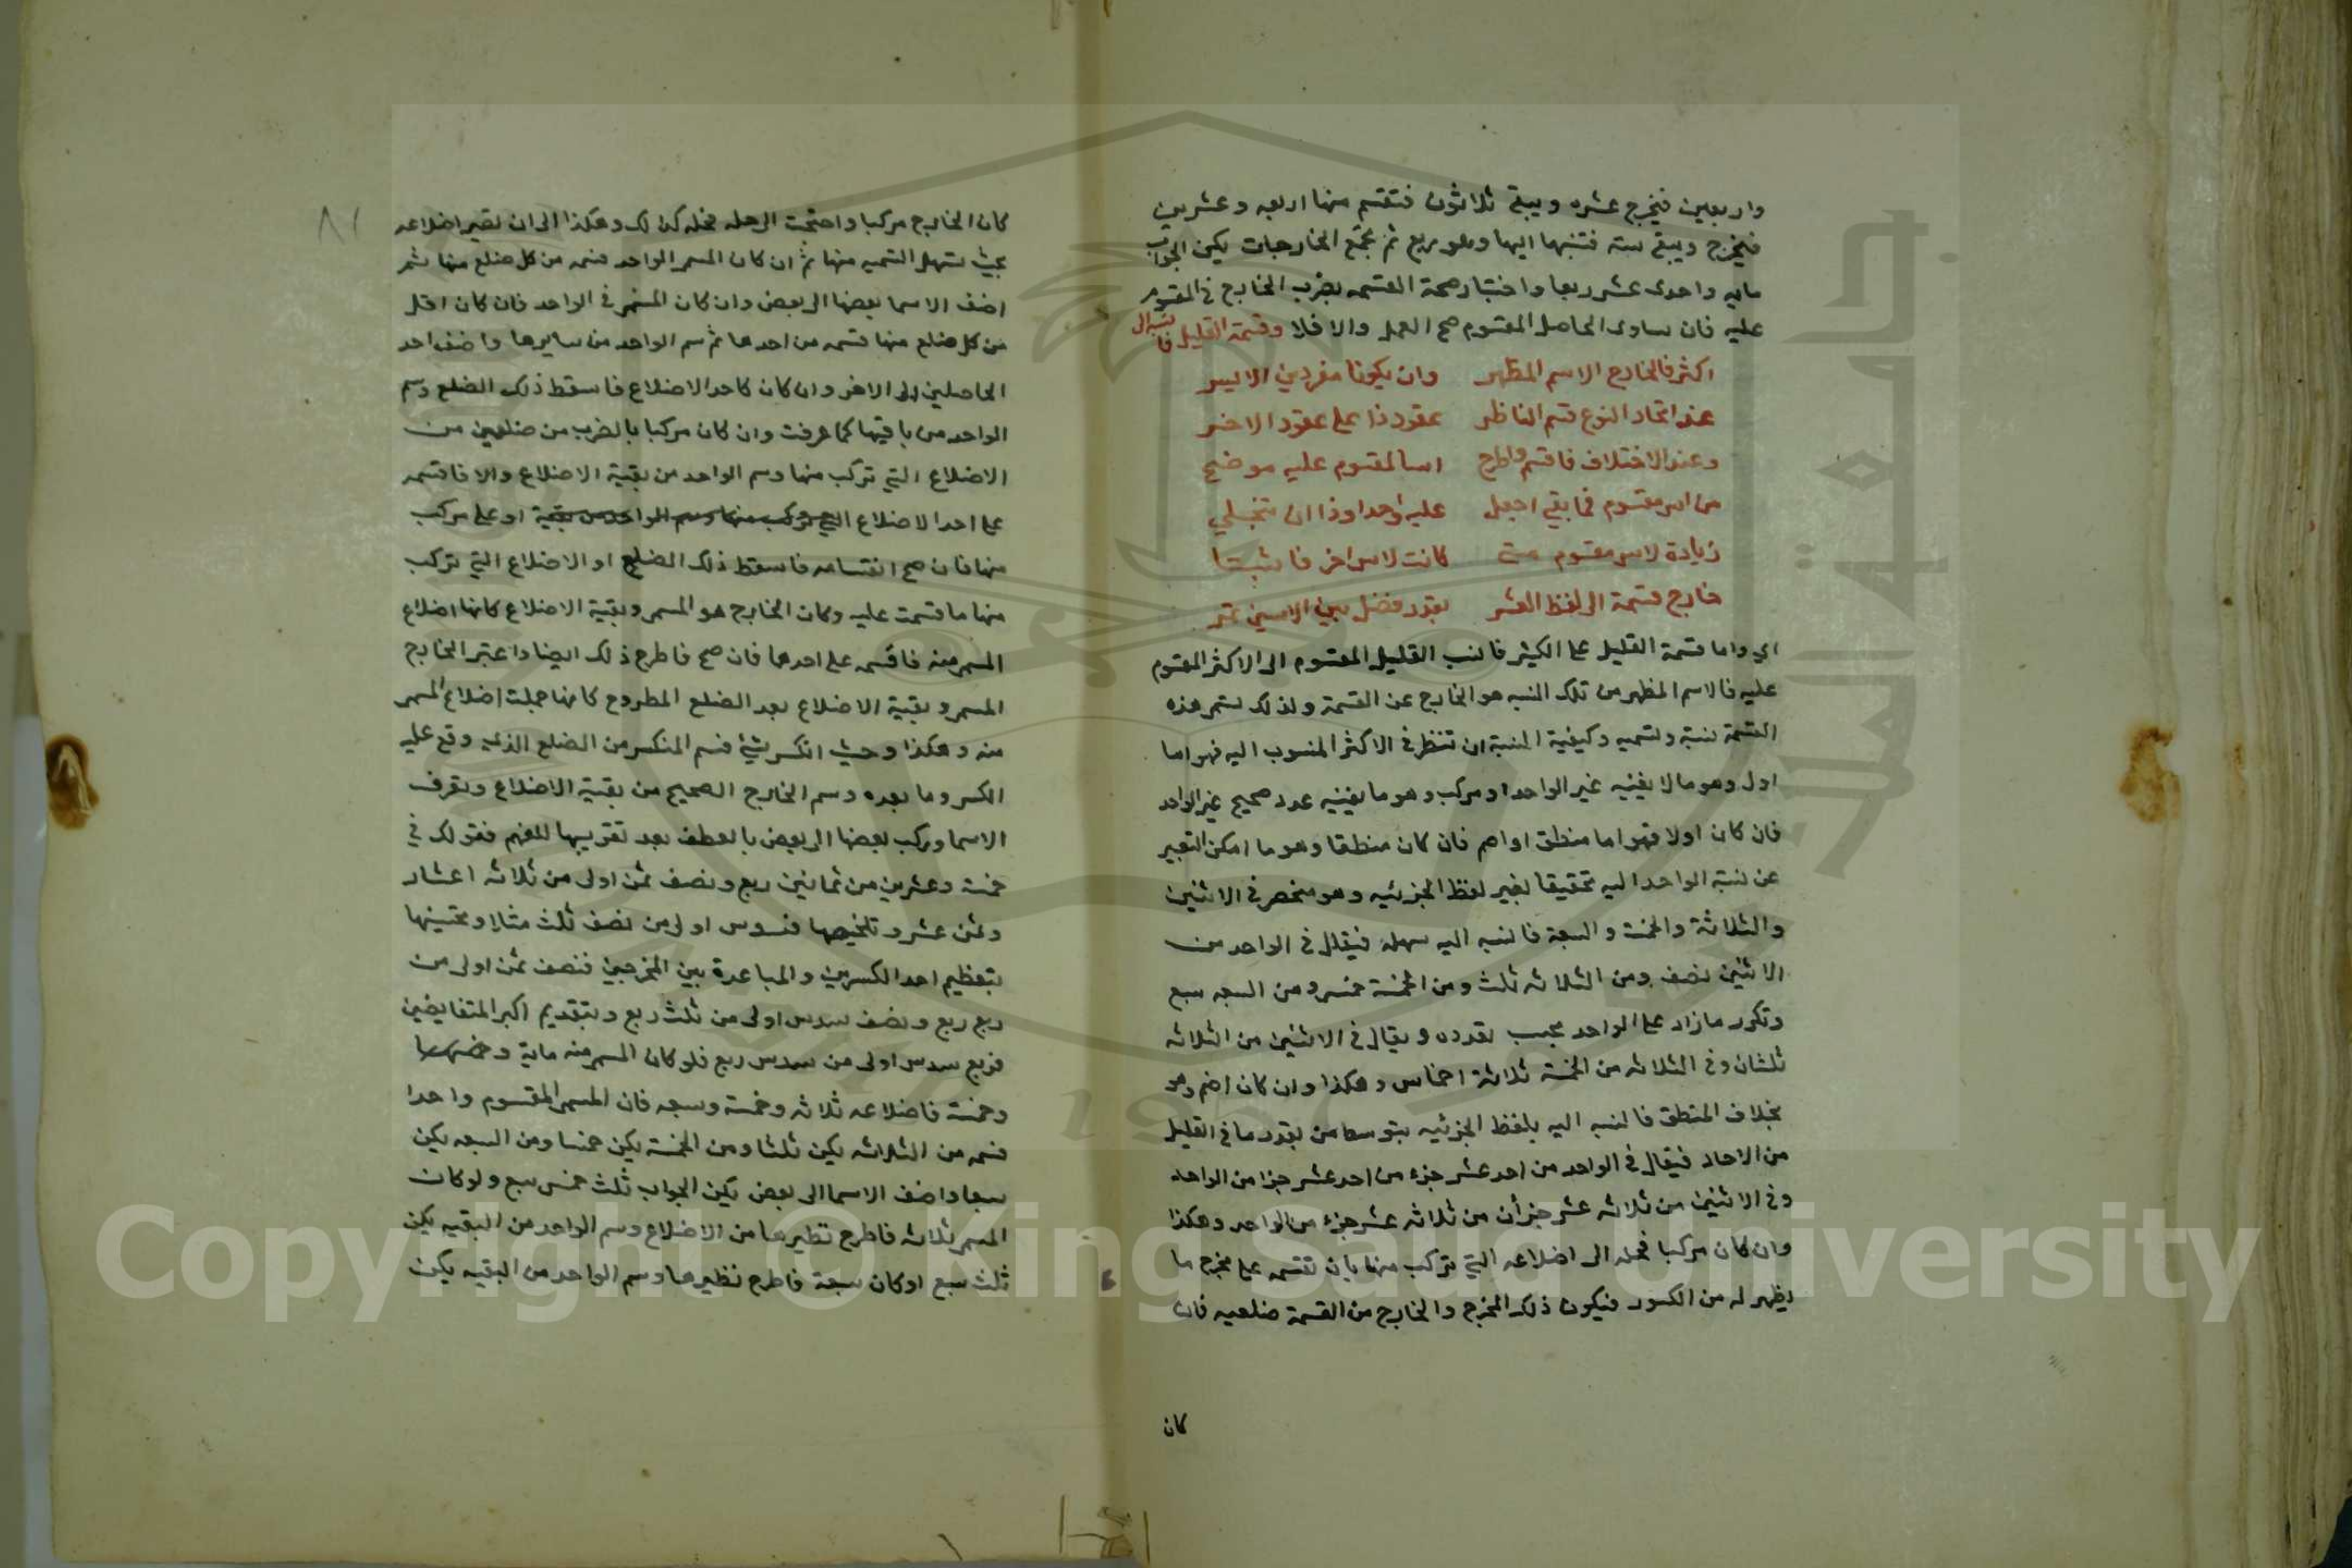 واربعين فيخرج عشره ويبقى ثلاثون فتقسم منها اربعه وعشرين
فيخرج ويبقى سته فتنسبها اليها وهو ربع ثم تجمع الخارجات يكن الجواب
مايه واحدى عشر ربعا واختبار صحة القسمه بضرب الخارج في المقسوم
عليه فان ساوى الحاصل المقسوم صح العمل والا فلا وقسمة القليل
اكثر فالخارج الاسم المظهر وان يكونا مفردين الايسر
عند اتحاد النوع قسم الناظر عقود ذا على عقود الاخر
وعند الاختلاف فاقسم واطرح اسا لمقسوم عليه موضح
من اس مقسوم فما بقي اجعل عليه واحدا وذا ان تنجلي
زيادة لاس مقسوم متى كانت لاس اخر فاثبتا
خارج قسمة الى لفظ العشر بقدر فضل بين الاسين
اي واما قسمة القليل على الكثير فانسب القليل المقسوم الى الاكثر المقسوم
عليه فالاسم المظهر من تلك النسبه هو الخارج عن القسمة ولذلك تسمى هذه
القسمة نسبة وتسميه وكيفية النسبة ان تنظر في الاكثر المنسوب اليه فهو اما
اول وهو ما لا يفنيه غير الواحد او مركب وهو ما يفنيه عدد صحيح غير الواحد
فان كان اولا فهو اما منطق او اصم فان كان منطقا وهو ما امكن التعبير
عن نسبة الواحد اليه تحقيقا بغير لفظ الجزئيه وهو منحصر في الاثنين
والثلاثة والخمسة والسبعة فالنسبه اليه سهلة فيقال في الواحد من
الاثنين نصف ومن الثلاثه ثلث ومن الخمسة خمس ومن السبعه سبع
وتكرر ما زاد على الواحد بحسب بقدره ويقال في الاثنين من الثلاثه
ثلثان وفي الثلاثه من الخمسة ثلاثة اخماس وهكذا وان كان اصم وهو
بخلاف المنطق فالنسبه اليه بلفظ الجزئيه بتوسط من بقدر ما في القليل
من الاحاد فيقال في الواحد من احد عشر جزء من احد عشر جزا من الواحد
وفي الاثنين من ثلاثه عشر جزأن من ثلاثه عشر جزء من الواحد وهكذا
وان كان مركبا فحله الى اضلاعه التي تركب منها بان تقسمه على مخرج ما
يظهر له من الكسور فيكون ذلك المخرج والخارج من القسمة ضلعيه فان
كان
كان الخارج مركبا واحتجت الى حله فحله كذلك وهكذا الى ان تصير اضلاعه
بحيث تسهل التسميه منها ثم ان كان المسمى الواحد فسمه من كل ضلع منها ثم
اضف الاسما بعضها الى بعض وان كان المسمى غير الواحد فان كان اقل
من كل ضلع منها فسمه من احدها ثم سم الواحد من سايرها واضف احد
الحاصلين الى الاخر وان كان كاحد الاضلاع فاسقط ذلك الضلع وسم
الواحد من باقيها كما عرفت وان كان مركبا بالضرب من ضلعين من
الاضلاع التي تركب منها وسم الواحد من بقية الاضلاع والا فاقسمه
على احد الاضلاع التي تركب منها وسم الواحد من بقية او على مركب
منها فان صح انقسامه فاسقط ذلك الضلع او الاضلاع التي تركب
منها ما قسمت عليه وكان الخارج هو المسمى وبقية الاضلاع كانها اضلاع
المسمى منه فاقسمه على احدها فان صح فاطرح ذلك ايضا واعتبر الخارج
المسمى وبقية الاضلاع بعد الضلع المطروح كانها جملت اضلاع المسمى
منه وهكذا وحيث انكسر شيء فسم المنكسر من الضلع الذي وقع عليه
الكسر وما بعده وسم الخارج الصحيح من بقية الاضلاع وتعرف
الاسما وتركب بعضها الى بعض بالعطف بعد تقريبها للفهم فقولك في
خمسة وعشرين من ثمانين ربع ونصف ثمن اولى من ثلاثه اعشار
وثمن عشر وتلخيصها فسدس اولى من نصف ثلث مثلا وتحسينها
بتعظيم احد الكسرين والمباعدة بين المخرجين فنصف ثمن اولى من
ربع ربع ونصف سدس اولى من ثلث ربع وبتقديم اكبر المتفايضين
فربع سدس اولى من سدس ربع فلو كان المسمى منه ماية
وخمسة فاضلاعه ثلاثه وخمسة وسبعه فان المسمى المقسوم واحدا
فسمه من الثلاثه يكن ثلثا ومن الخمسة يكن خمسا ومن السبعه يكن
سبعا واضف الاسما الى بعض يكن الجواب ثلث خمس سبع ولو كان
المسمى ثلاثه فاطرح نظيرها من الاضلاع وسم الواحد من البقيه يكن
ثلث سبع او كان سبعة فاطرح نظيرها وسم الواحد من البقيه يكن
Copyright © King Saud University
جامعة الملك سعود